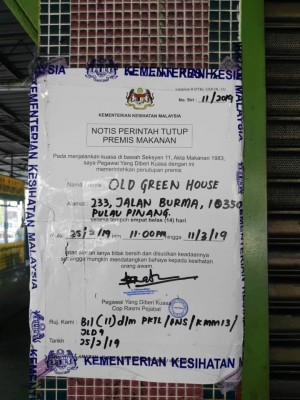 KEMENTERIAN KESIHATAN MALAYSIA
No. Siri : 11/2019
KEMENTERIAN KESIHATAN MALAYSIA
NOTIS PERINTAH TUTUP
PREMIS MAKANAN
Pada menjalankan kuasa di bawah Seksyen 11, Akta Makanan 1983,
saya Pegawai Yang Diberi Kuasa dengan ini
memerintahkan penutupan premis
Nama Premis : OLD GREEN HOUSE
Alamat : 233, JALAN BURMA, 10350
PULAU PINANG.
selama tempoh empat belas (14) hari
11:00PM hingga 11/3/19
tidak bersih dan disucikan keadaannya
sehingga mungkin mendatangkan bahaya kepada kesihatan
orang awam.
Pegawai Yang Diberi Kuasa
Cop Rasmi Pejabat
Ruj. Kami :
Tarikh :
KEMENTERIAN KESIHATAN MALAYSIA
KEMENTERIAN KESIHATAN